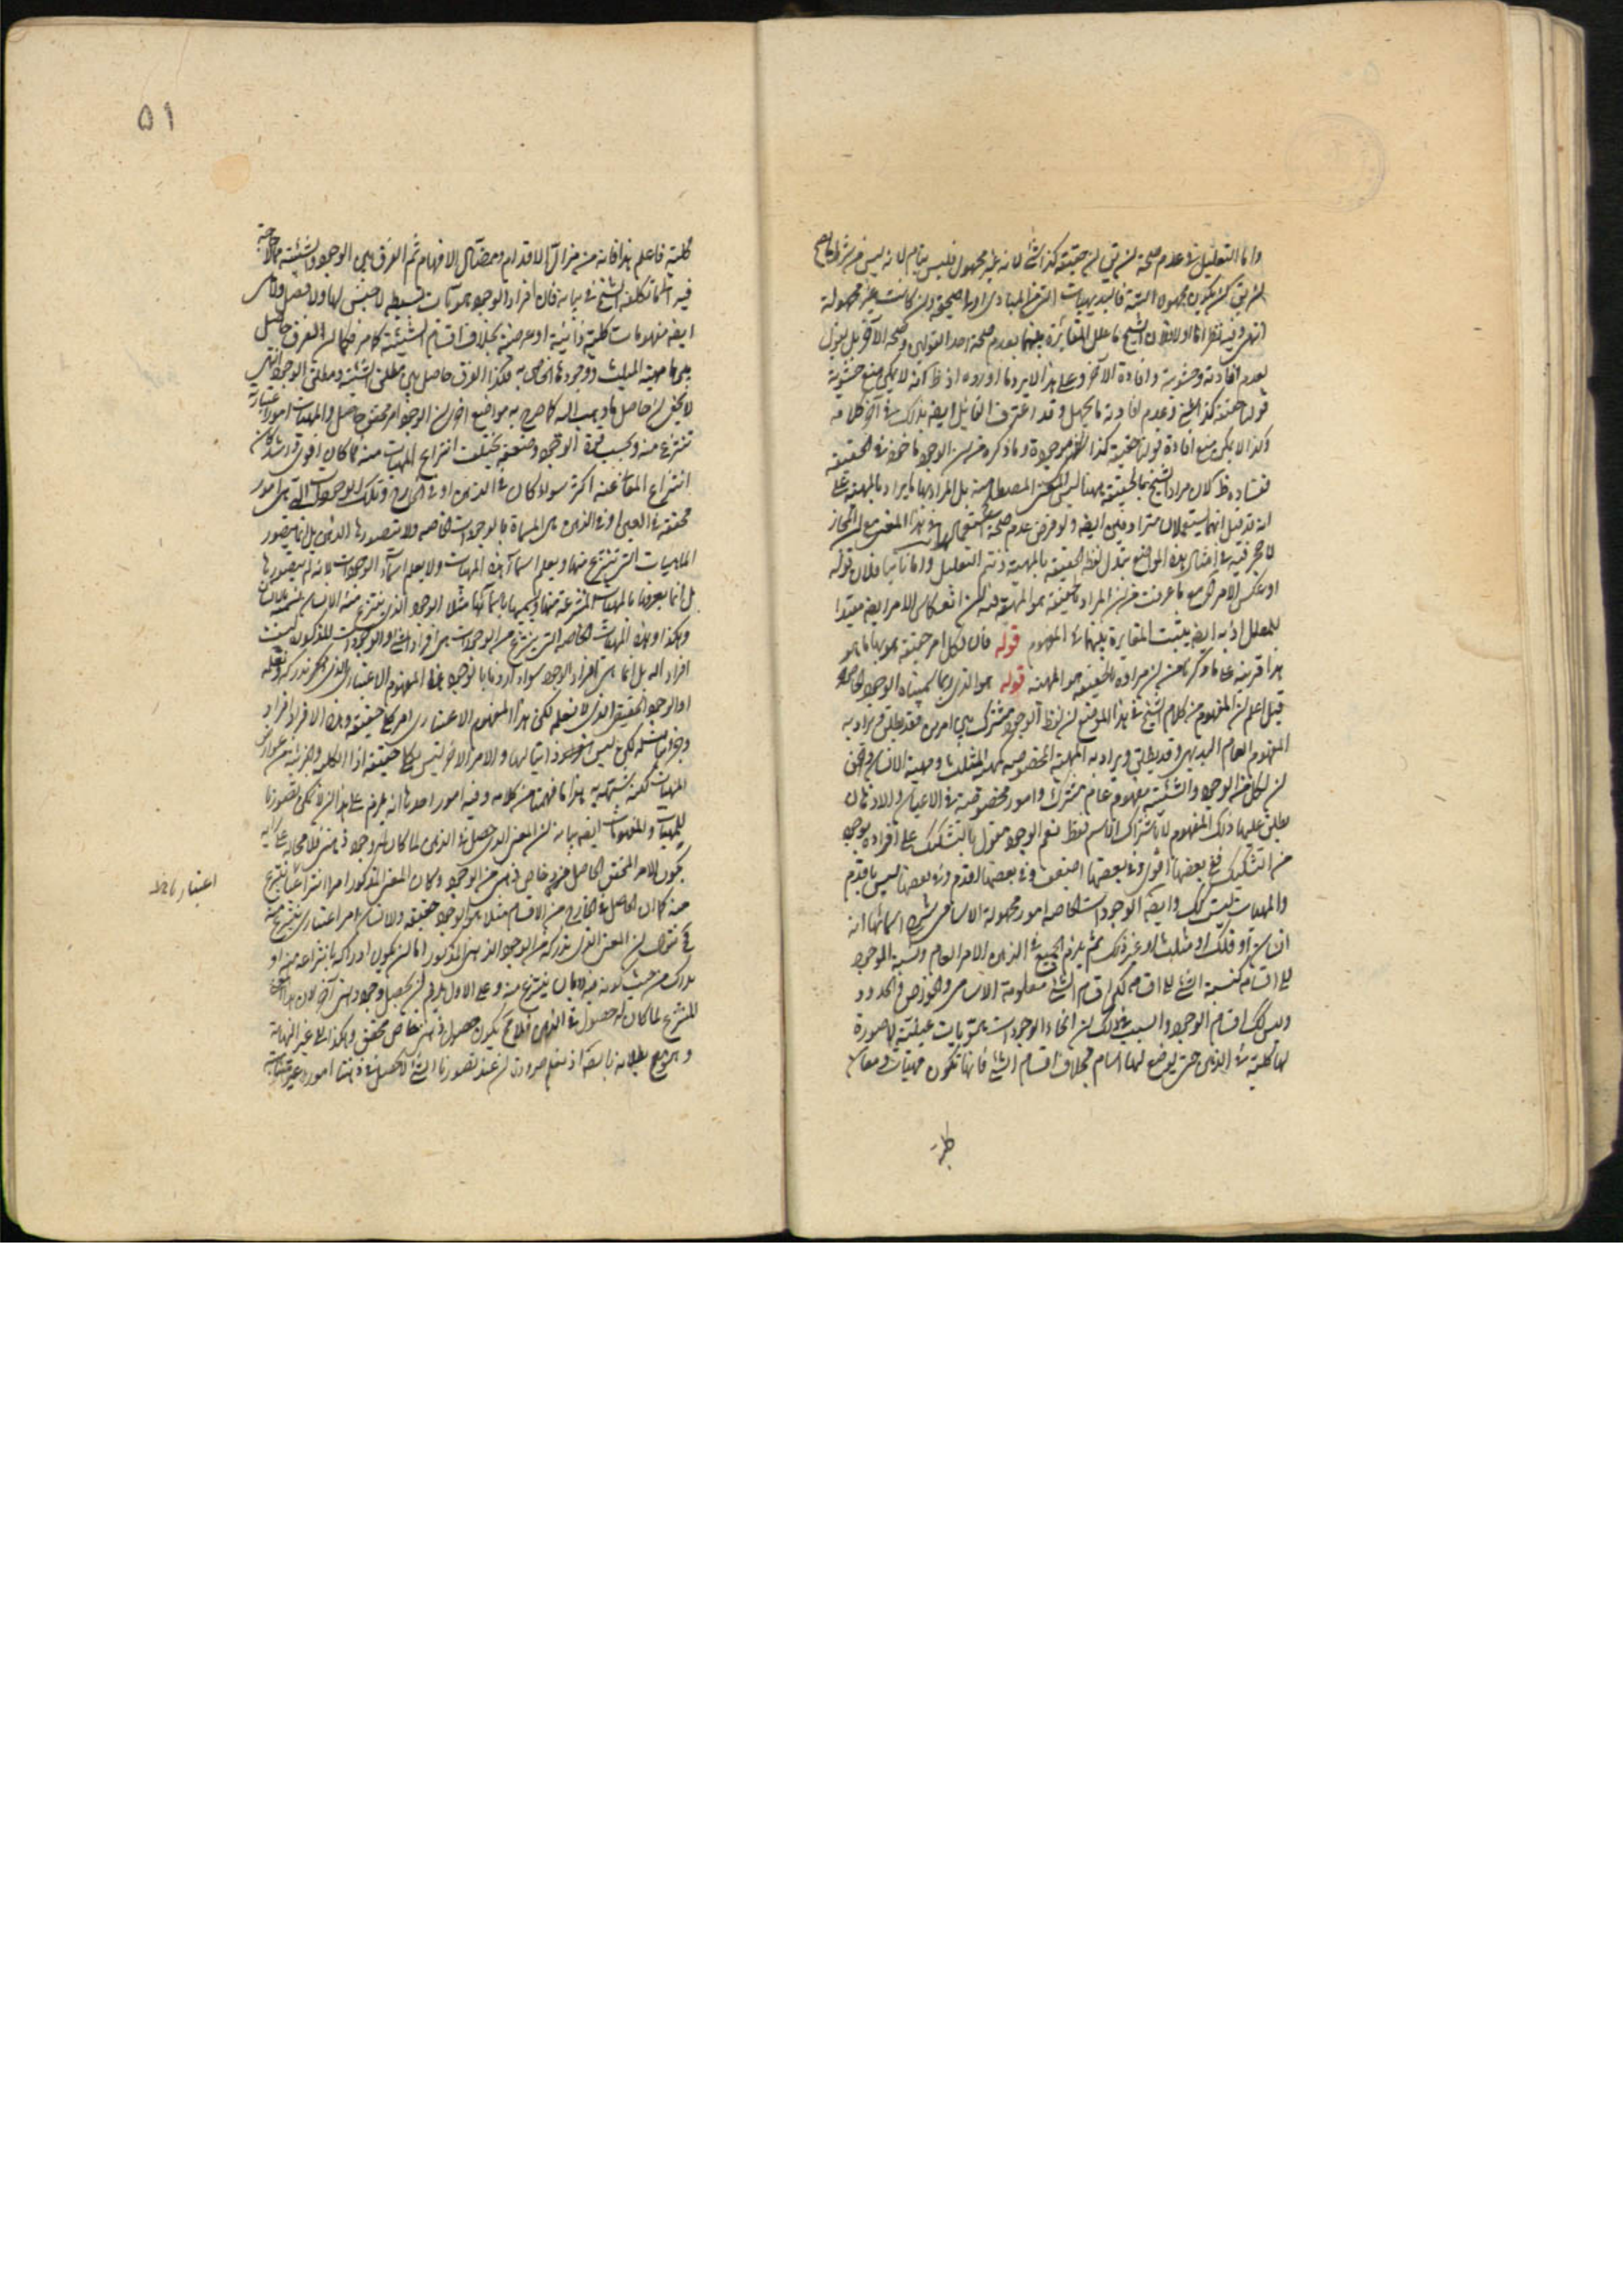 واما التعليل في عدم صحة ان يق ان حقيقة كذا شئ لانه غير مجهول فليس بتام لانه ليس من شرط ما يصح
ان يق ان يكون مجهولا البتة فالبديهيات التي من المبادى اولا صحيحة وان كانت غير مجهولة
انتهى وفيه نظر اما اولا فلان الشيخ ما علل المغايرة بينهما بعدم صحة احد القولين وصحة الآخر بل يقول
بعدم افادته وحشويته وافادة الآخر وعلى هذا لا يرد ما اورده اذ ظ انه لا يمكن منع حشوية
قولنا حقيقة كذا شئ وعدم افادته ما يجهل وقد اعترف القائل ايضا بذلك في آخر كلامه
وكذا لا يمكن منع افادة قولنا حقيقة كذا موجودة وما ذكره من ان الوجود ماخوذ في الحقيقة
ففساده ظ لان مراد الشيخ بالحقيقة ههنا ليس المعنى المصطلح بل المراد بها ما يراد بالمهية على
انه قد قيل انهما يستعملان مترادفين ايضا ولو فرض عدم صحة استعمالها في هذا المعنى مع ان المجاز
لا حجر فيه في امثال هذه المواضع نبدل لفظ الحقيقة بالمهية ونتم التعليل واما ثانيا فلان قوله
او بعكس الامر الى مع ما عرفت من ان المراد بالحقيقة هو المهية فيه ان انعكاس الامر ايضا مفيد
للمعلل اذ به ايضا يثبت المغايرة بينهما في المفهوم قوله فان لكل امر حقيقة هو بها ما هو
هذا قرينة على ما ذكرنا من ان مراده بالحقيقة هو المهية قوله هو الذى ربما سميناه الوجود الخاص
قيل اعلم ان المفهوم من كلام الشيخ في هذا الموضع ان لفظ الوجود مشترك بين امرين فقد يطلق ويراد به
المفهوم العام البديهى وقد يطلق ويراد به المهية المخصوصة كمهية المثلث ومهية الانسان والحق
ان لكل من الوجود والشيئية مفهوم عام مشترك وامور مخصوصة في الاعيان والاذهان
يطلق عليها ذلك المفهوم لا بالاشتراك الاسم فقط نعم الوجود مقول بالتشكيك على افراده بوجوه
من التشكيك ففى بعضها اقوى وفى بعضها اضعف وفى بعضها اقدم وفى بعضها ليس باقدم
والمهيات ليست كك وايضا الوجودات الخاصة امور مجهولة الاسامى شرح اسمائها انه
انسان او فلك او مثلث او غير ذلك ثم يلزم الجميع في الذهن الامر العام ونسبة الموجود
الى اقسامه كنسبة الشئ الى اقسامه لكن اقسام الشئ معلومة الاسامى والخواص والحدود
وليس كك اقسام الوجود والسبب في ذلك ان انحاء الوجودات هويات عينية لا صورة
لها كلية في الذهن حتى يوضع لها اسام بخلاف اقسام الشئ فانها تكون مهيات ومعان
كلية
٥١
كلية فاعلم هذا فانه من مزال الاقدام ومضال الافهام ثم الفرق بين الوجود والشيئية مما لا حاجة
فيه الى ما تكلفه الشيخ في بيانه فان افراد الوجود هويات بسيطة لا جنس لها ولا فصل وليس
ايضا مفهومات كلية ذاتية او عرضية بخلاف اقسام الشيئية كما مر فكما ان الفرق حاصل
بين مهية المثلث ووجودها الخاص به فكذا الفرق حاصل بين مطلق الشيئية ومطلق الوجود انتهى
لا يخفى ان حاصل ما ذهب اليه كما صرح به مواضع اخر ان الوجود امر محقق حاصل والمهيات امور اعتبارية
تنتزع منه وبحسب قوة الوجود وضعفه يختلف انتزاع المهيات منه فما كان اقوى واشد كان
انتزاع المعانى عنه اكثر سواء كان في الذهن او في الخارج وتلك الوجودات التى هى امور
محققة في العين او في الذهن هى المسماة بالوجودات الخاصة ولا يتصورها الذهن بل انما يتصور
الماهيات التى تنتزع منها ويعلم اسماء هذه المهيات ولا يعلم اسماء الوجودات لانه لم يتصورها
بل انما يعرفها بالمهيات المنتزعة منها ويسميها باسمائها مثلا الوجود الذى ينتزع منه الانسان نسميه بالانسان
وهكذا وهذه المهيات الخاصة التى ينتزع من الوجودات هى افراد الشئ والوجودات المذكورة ليست
افراد اله بل انما هى افراد الوجود سواء اردنا بالوجود هذا المفهوم الاعتبارى الذى يمكن ندركه ونعقله
او الوجود الحقيقى الذى لا نعلمه لكن هذا المفهوم الاعتبارى امر كلى حقيقة وهذه الافراد افراد
وجزئيات له لكن ليس هو ذاتيا لها والامر الآخر ليس بكلى حقيقة اذ الكلية والجزئية من عوارض
المهيات لكنه شبيه به هذا ما فهمته من كلامه وفيه امور احدها انه يلزم على هذا ان لا يمكن تصورنا
للمهيات والمفهومات ايضا بيانه ان المعنى الذى حصل في الذهن لما كان له وجود ذهنى فلا محالة على رايه
يكون الامر المحقق الحاصل فرد خاص ذهنى من الوجود وكان المعنى المذكور امرا انتزاعيا ينتزع
منه كما ان الحاصل في الخارج من الاقسام مثلا هو الوجود حقيقة والانسان امر اعتبارى ينتزع منه
فح نقول ان المعنى الذى ندركه من الوجود الذهنى المذكور اما ان يكون ادراكه بانتزاعه منه او
بادراكه من حيث كونه فيه بان ينتزع منه وعلى الاول يلزم ان يحصل وجود ذهنى آخر لان هذا المعنى
المنتزع لما كان له حصول في الذهن فلا مح يكون حصول ذهنى خاص محقق وهكذا الى غير النهاية
وهو مع بطلانه بالبديهة اذ نعلم ضرورة ان عند تصورنا الشئ لا يحصل في ذهننا امور غير متناهية
اعتباريا ظ